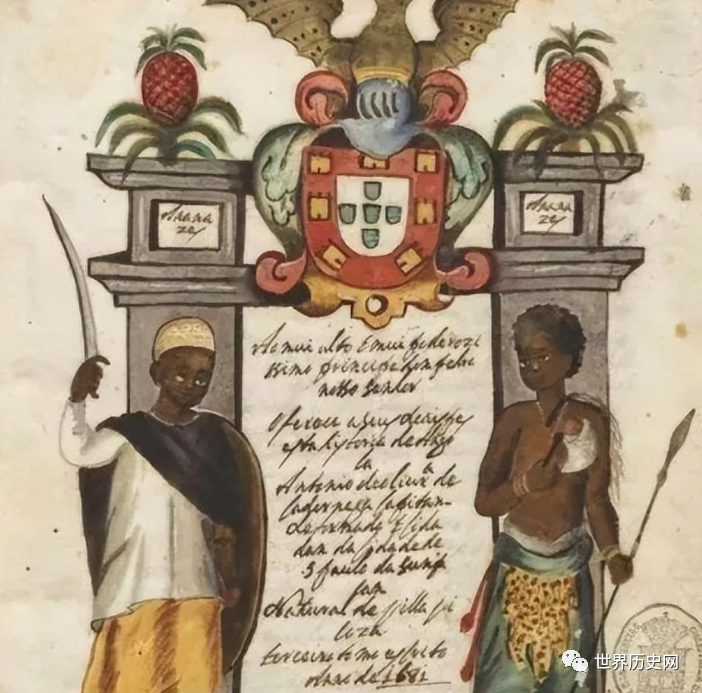 Anana
zes
Anana
zes
Ao mui alto E mui poderozi
ssimo principe Dom pedro
nosso senhor
Oferece a seus pes
esta historia de Ango
la
Antonio de oliura de
Cadornega Capitam
Reformado E sida
dam da sidade de
S paulo da Sump
sam
Natural de Villa vi
coza
terceiro tomo escrito
anno de 1681
世界历史网